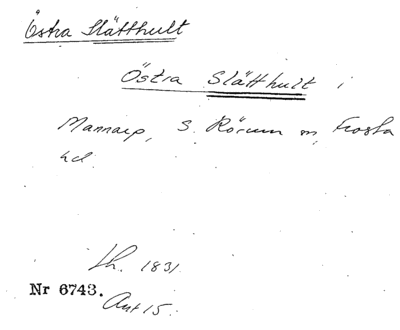 Östra Slätthult
Östra Slätthult i
Mannarp, S. Rörum sn, Frosta
hd.
Lh. 1831.
Nr 6743.
Ant 15.